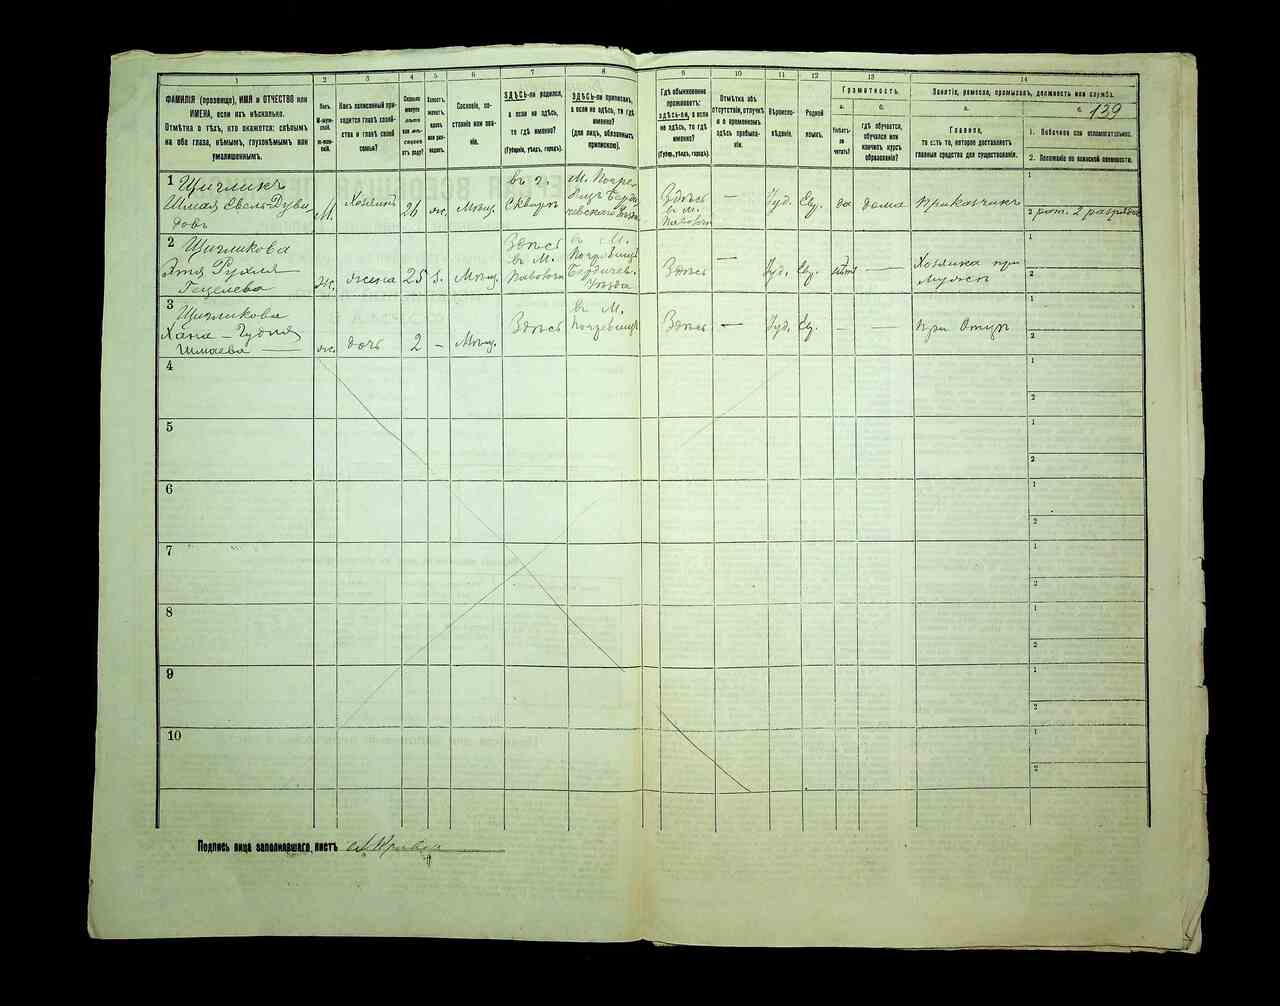 1
2
3
4
5
6
7
8
9
10
11
12
13
14
ФАМИЛІЯ (прозвище), ИМЯ и ОТЧЕСТВО или
ИМЕНА, если ихъ нѣсколько.
Отмѣтка о тѣхъ, кто окажется: слѣпымъ
на оба глаза, нѣмымъ, глухонѣмымъ или
умалишеннымъ.
Какъ записанный при-
ходится главѣ хозяй-
ства и главѣ своей
семьи?
Сословіе, со-
стояніе или зва-
ніе.
ЗДѢСЬ-ли родился,
а если не здѣсь,
то гдѣ именно?
(Губернія, уѣздъ, городъ).
ЗДѢСЬ-ли приписанъ,
а если не здѣсь, то гдѣ
именно?
(для лицъ, обязанныхъ
припискою).
Гдѣ обыкновенно
проживаетъ:
здѣсь-ли, а если
не здѣсь, то гдѣ
именно?
(Губернія, уѣздъ, городъ).
Отмѣтка объ
отсутствіи, отлучкѣ
и о временномъ
здѣсь пребыва-
ніи.
Вѣроиспо-
вѣданіе.
Родной
языкъ.
Грамотность.
а.
Умѣетъ-
ли
читать?
б.
гдѣ обучается,
обучался или
кончилъ курсъ
образованія?
Занятіе, ремесло, промыселъ, должность или служба.
а.
Главное,
то есть то, которое доставляетъ
главныя средства для существованія.
б.
139
1. Побочное или вспомогательное.
2. Положеніе по воинской повинности.
1 Щигликъ
Шмая Свель Дуви
довъ
М.
Хозяинъ
26
ж.
Мѣщ.
въ г.
Сквирѣ
М. Погре-
бищъ Берди
чевскаго уѣзда
Здѣсь
в м.
Паволочи
—
Іуд.
Евр.
да
дома
Приказчикъ
1
2 рат. 2 разряда
2 Щигликова
Этя Рухля
Гецелева
ж.
жена
25
з.
Мѣщ.
Здѣсь
въ М.
Паволочи
в М.
Погребищ
Бердичев.
уѣзда
Здѣсь
—
Іуд.
Евр.
нѣтъ
—
Хозяйка при
мужѣ
1
2
3 Щигликова
Хана-Гудля
Шмаева
ж.
дочь
2
–
Мѣщ.
Здѣсь
въ М.
Погребищ
Здѣсь
—
Іуд.
Евр.
–
При Отцѣ
1
2
4
1
2
5
1
2
6
1
2
7
1
2
8
1
2
9
1
2
10
1
2
Подпись лица заполнявшаго листъ